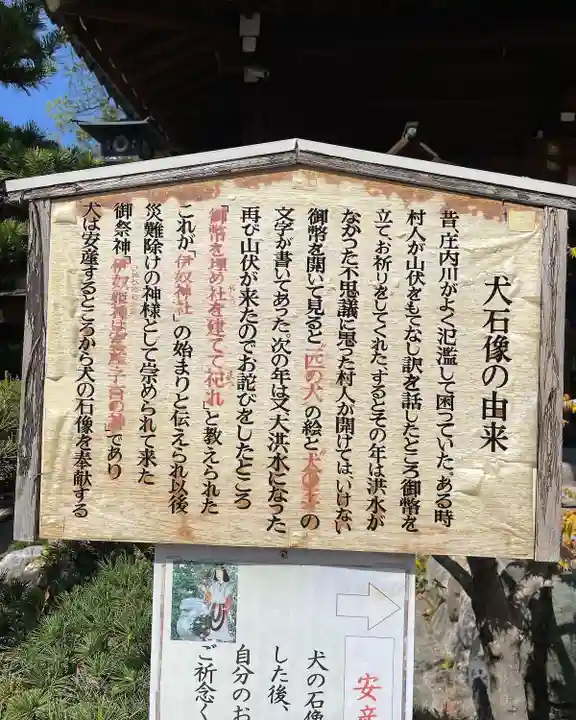 犬石像の由来
昔、庄内川がよく氾濫して困っていた。ある時
村人が山伏をもてなし訳を話したところ御幣を
立てお祈りをしてくれた。するとその年は洪水が
なかった不思議に思った村人が開けてはいけない
御幣を開いて見ると「一匹の犬」の絵と「犬の王」の
文字が書いてあった。次の年は又、大洪水になった
再び山伏が来たのでお詫びをしたところ
「御幣を埋め社を建てて祀れ」と教えられた
これが「伊奴神社」の始まりと伝えられ以後
災難除けの神様として崇められて来た
御祭神「伊奴姫神は安産・子育の神」であり
犬は安産するところから犬の石像を奉献する
安産
犬の石像
した後、
自分のお
ご祈念く